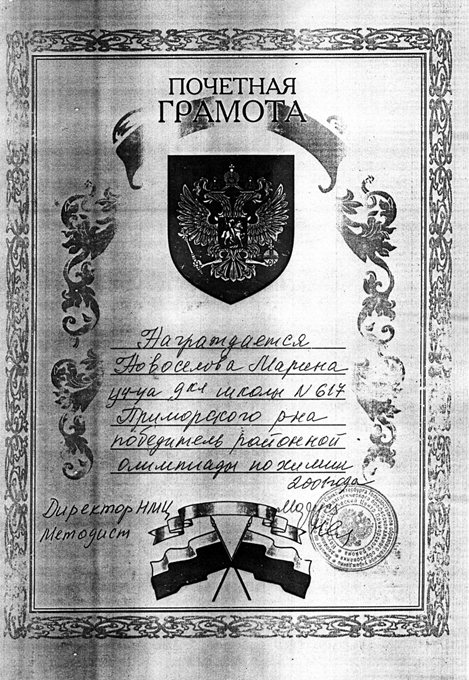 ПОЧЕТНАЯ
ГРАМОТА
Награждается
Новоселова Марина
уч-ца 9 кл школы N 617
Приморского р-на
победитель районной
олимпиады по химии
2001 года
Директор НМЦ
Методист